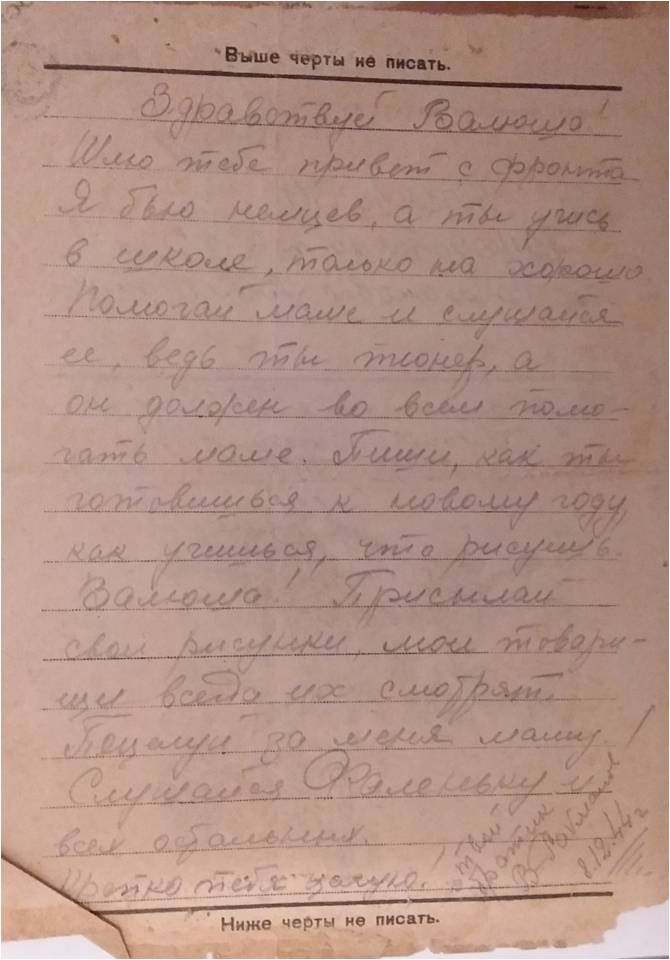 Выше черты не писать.
Здравствуй Валюша!
Шлю тебе привет с фронта
Я бью немцев, а ты учись
в школе, только на хорошо
Помогай маме и слушайся
ее, ведь ты пионер, а
он должен во всем помо-
гать маме. Пиши, как ты
готовишься к новому году,
как учишься, что рисуешь.
Валюша! Присылай
свои рисунки, мои товари-
щи всегда их смотрят.
Поцелуй за меня маму!
Слушайся Фаленьку и
всех остальных.
Крепко тебя целую!
твой
братик
В.
8.12.44 г
Ниже черты не писать.